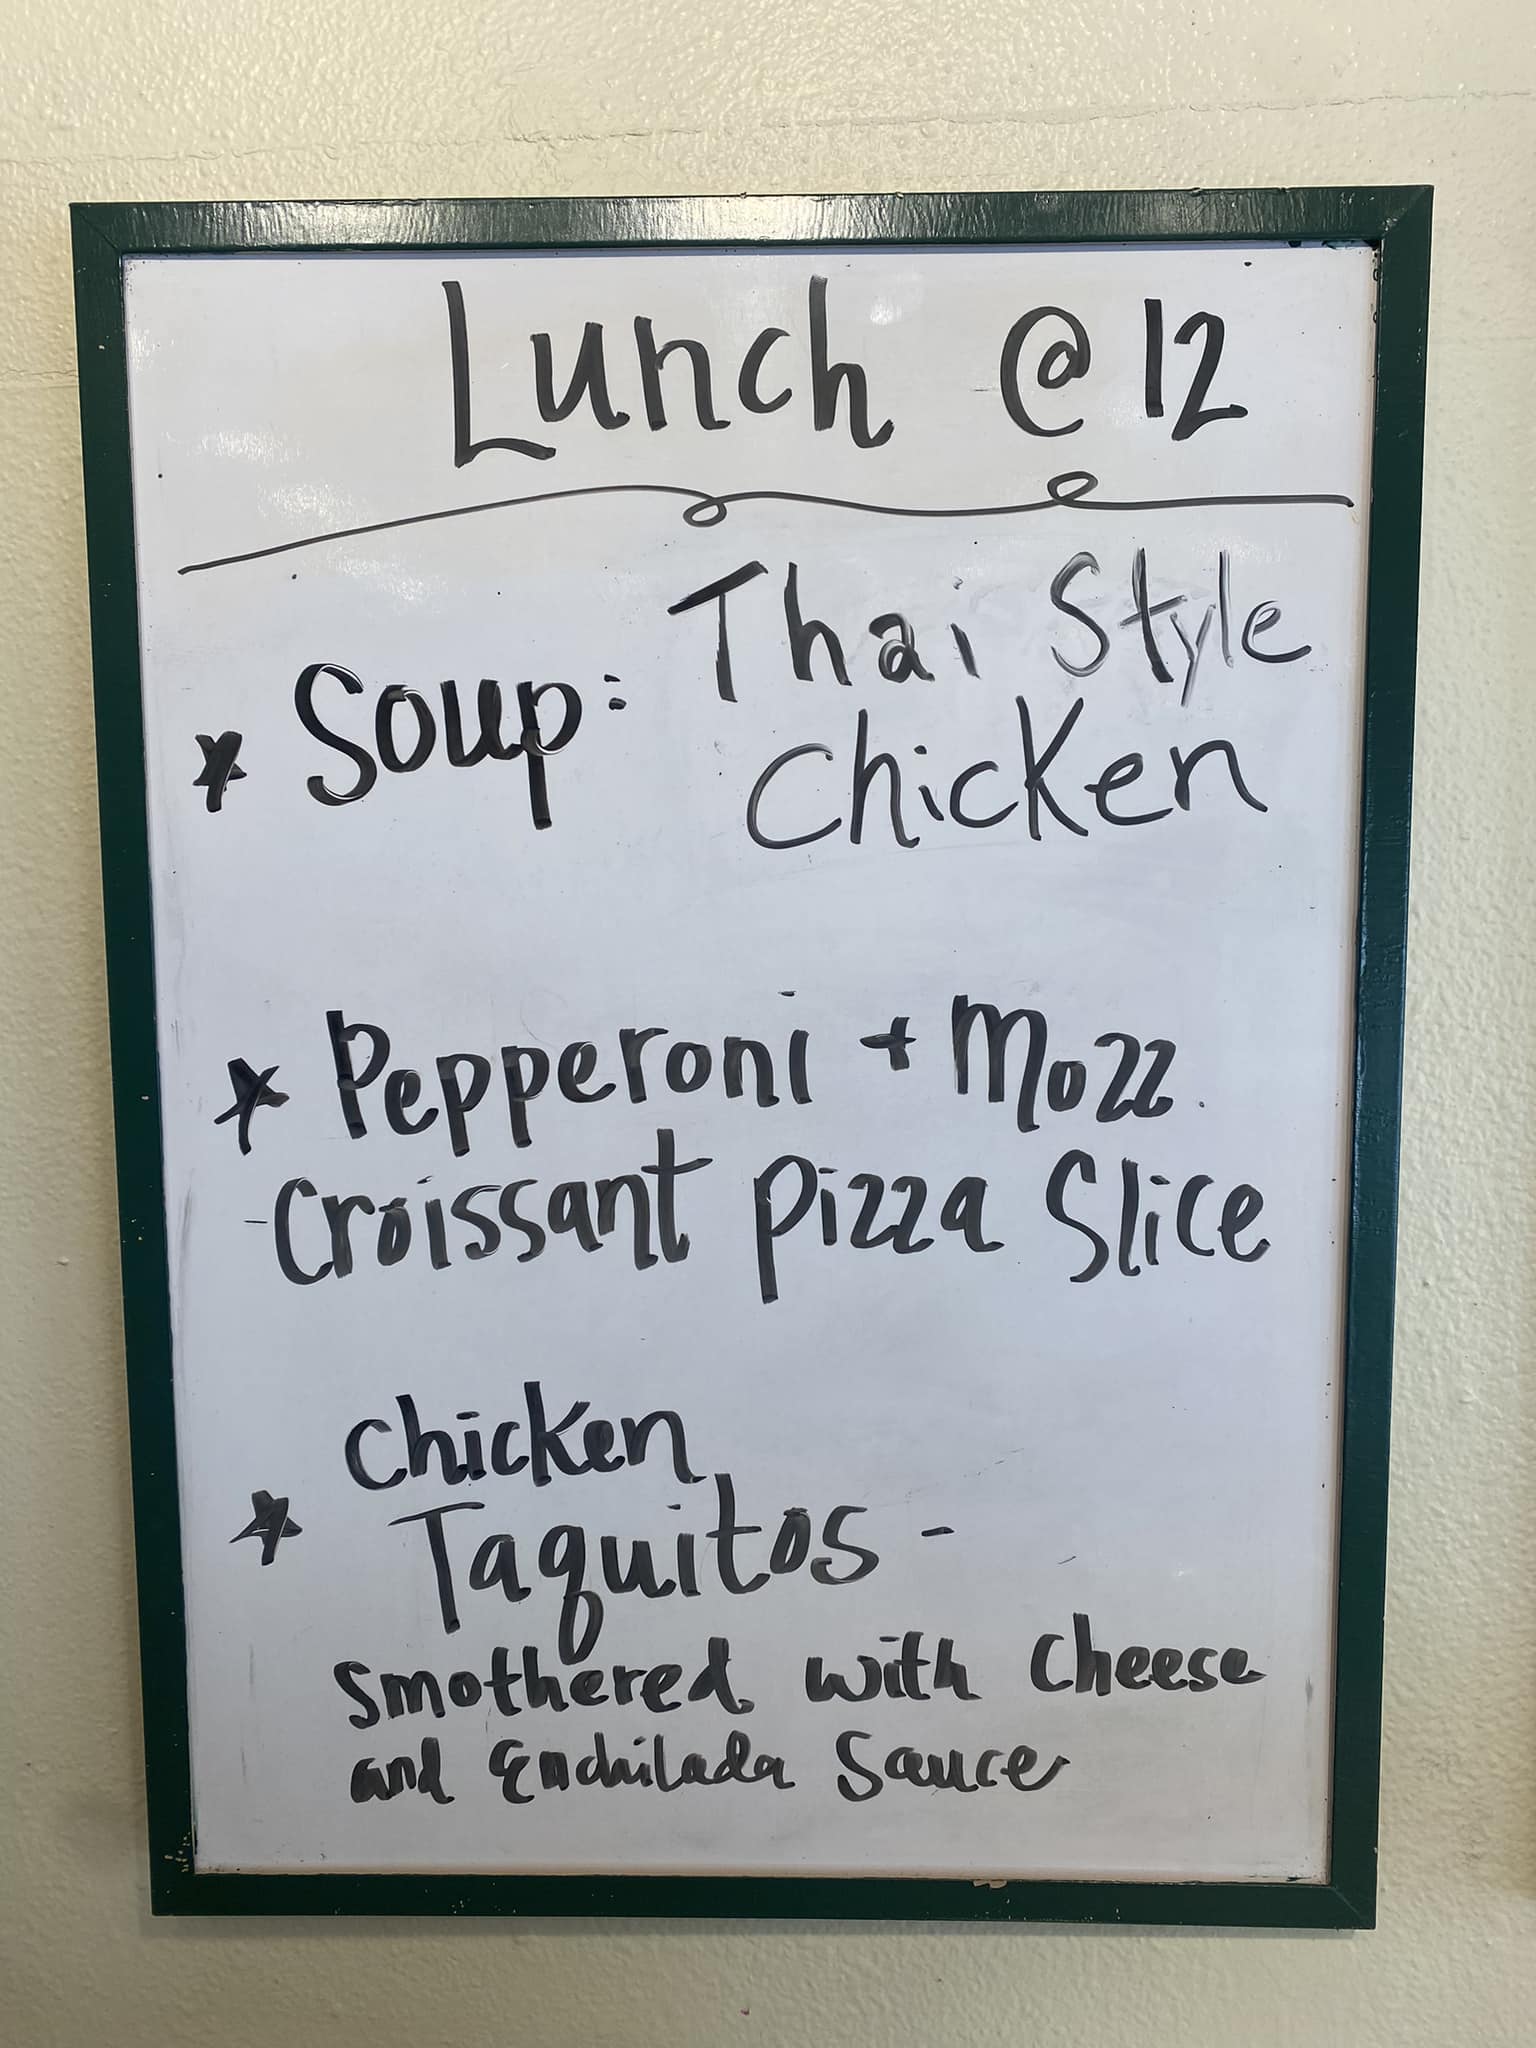 Lunch @ 12
Thai Style
* Soup:
Chicken
* Pepperoni + Mozz
Croissant Pizza Slice
Chicken
* Taquitos -
Smothered with Cheese
and Enchilada Sauce